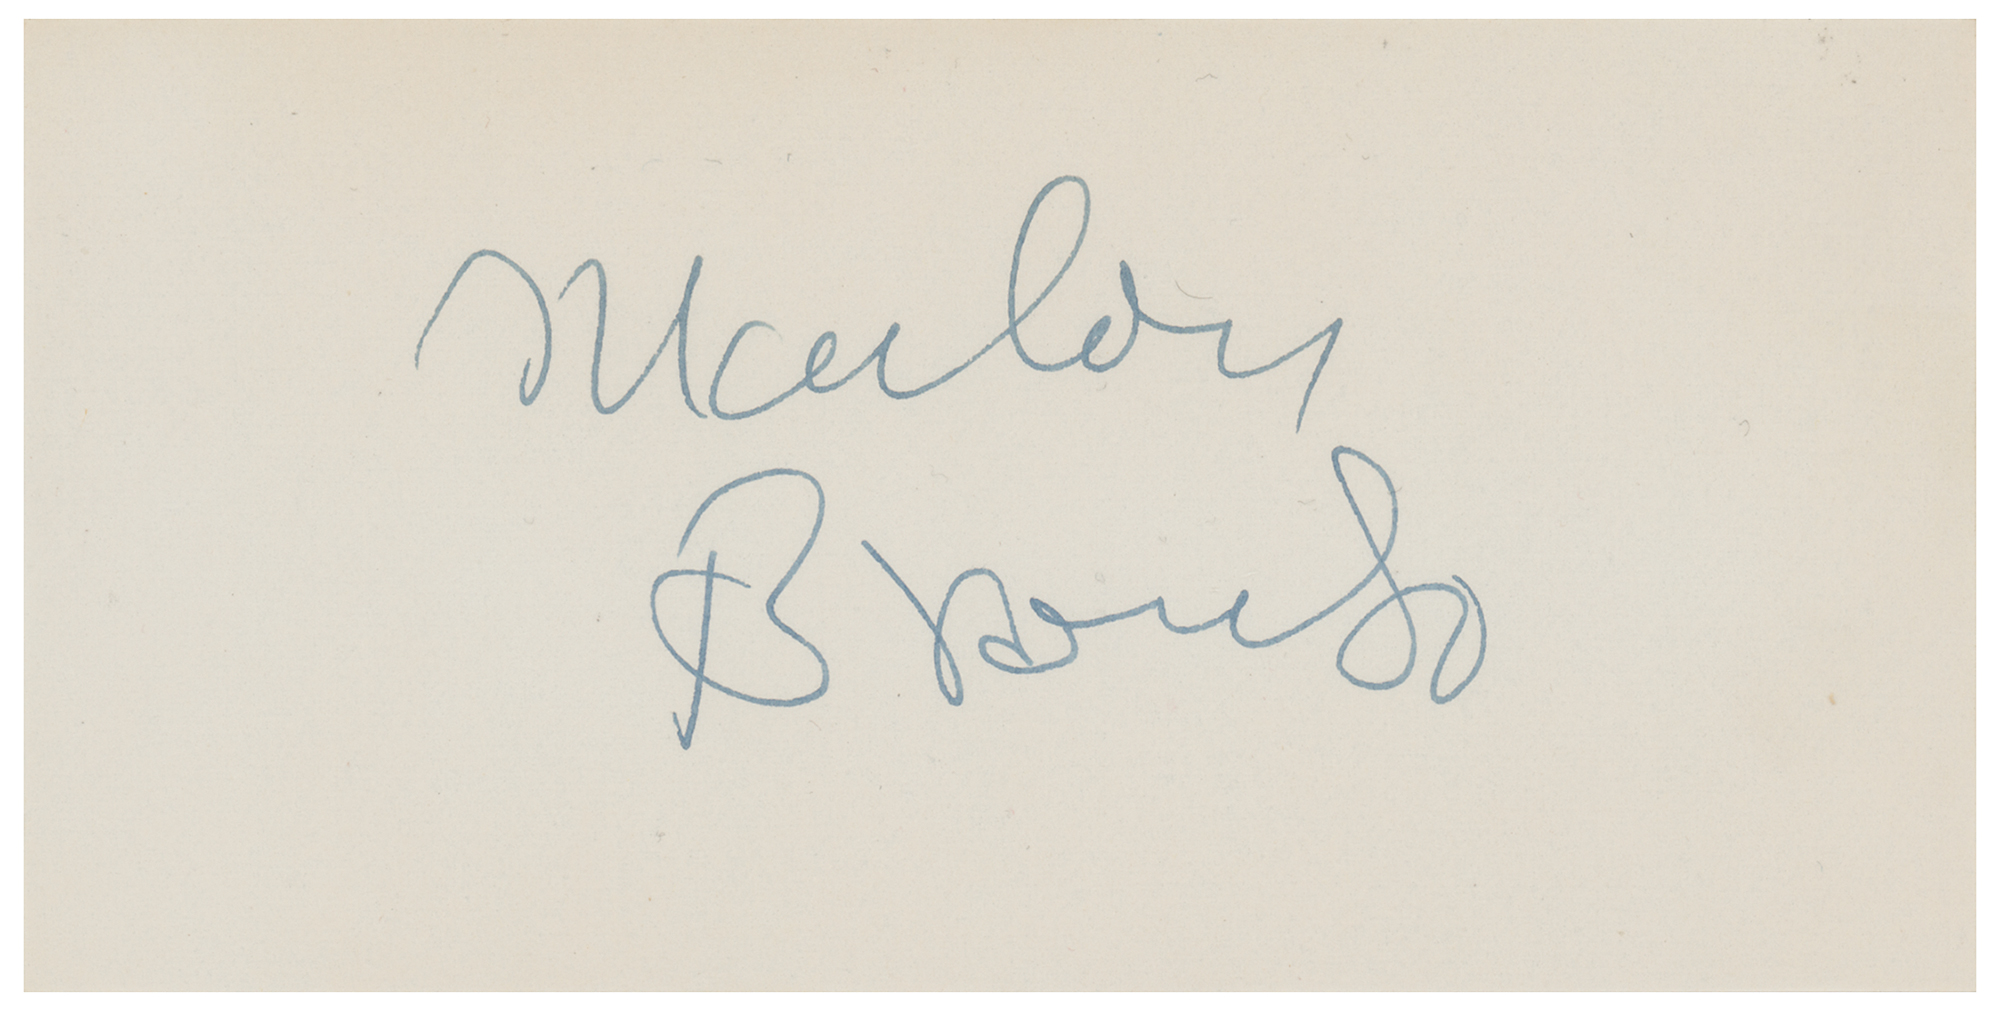 Marlon
Brando